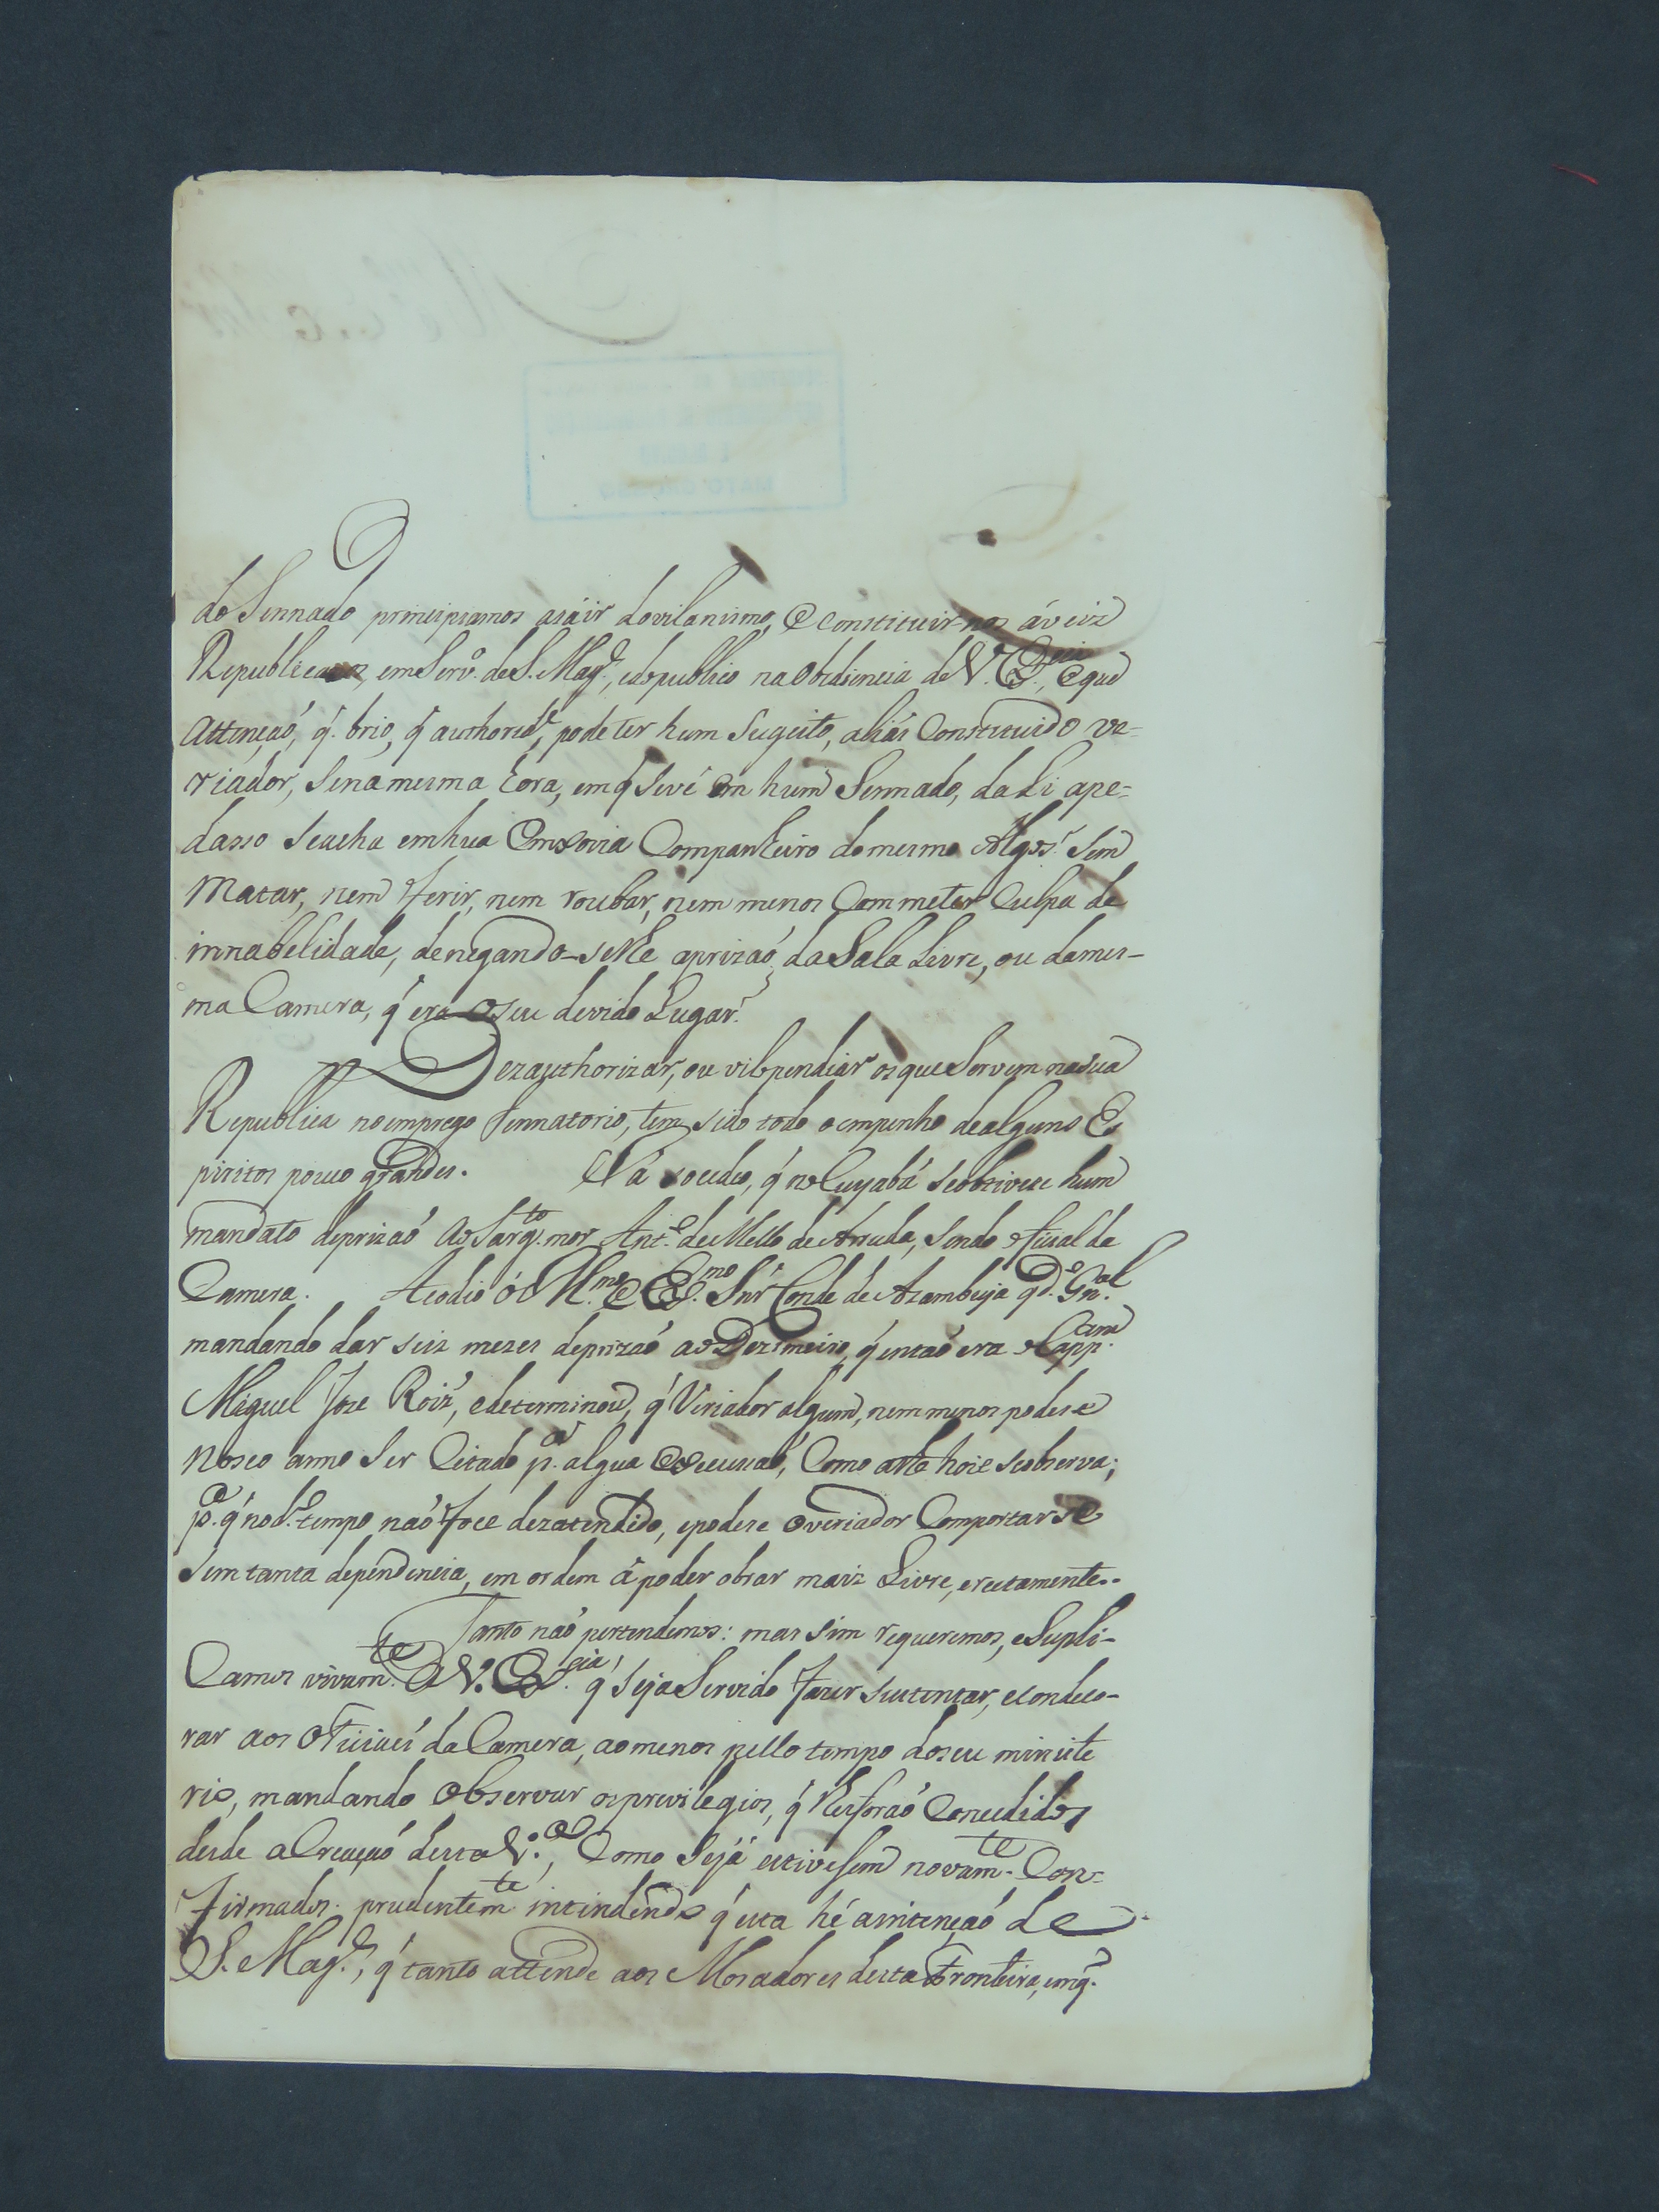 do Sennado principiamos asáir dovilanismo, e constituir-nos áveiz
Republicanos, em Serv.º de S. Mag.e, edopublico na Obediencia de V. Ex.cia, e que
attençaó, q̃ brio, q̃ authorid.e, pode ter hum Sugeito, aliás Constituido ve-
riador, Senamesma hora, emq̃ sevé em hum Sennado, dali ape-
dasso seacha emhua Emxovia Companheiro domesmo Algós! Sem
Matar, nem ferir, nem roubar, nem menos Commeter Culpa de
innabelidade, denegando-selhe aprizaó da Sala Livre, ou damês-
ma Camera, q̃ era oseu devido Lugar.
Dezauthorizar, ou vilipendiar osque Servem nasua
Republica noemprego Sennatorio, tem sido todo oempenho dealguns Es
piritos pouco grandes. Já socedeo, q̃ noCuyabá seobtivece hum
mandato deprizaó ao Sarg.to mor Ant.º de Mello de Arruda, sendo oficial da
Camera. Acodio ó Ill.mo e Ex.mo Snr̃ Conde de Azambuja q.do Gn.al
mandando dar seiz mezes deprizaó ao Dezimeiro, q̃ entaó era o Capp.am
Miguel Joze Roiz̃, edeterminou, q̃ Veriador algum, nem menos podese
nosco anno Ser Citado p.or algua execusaó, Como athe hoie seobserva;
p.a q̃ nod.º tempo naó foce dezatendido, epodese overiador Comportarse
sem tanta dependencia, em ordem á poder obrar maiz Livre, erectamente.
Tanto naó pertendemos: mas sim requeremos, eSupli-
Camos vivam.te a V. Ex.cia, q̃ seja Servido fazer sustentar, econdeco-
rar aos oficiaes da Camera, aomenos pello tempo doseu ministe
rio, mandando observar osprivilegios, q̃ lhesforaó Concedidos
desde aCreaçaó desta V.a, Como sejá estivesem novam.te Con-
firmados. prudentem.te intindendo q̃ esta hé aintençaó de
S. Mag.e, q̃ tanto attende aos Moradores desta Fronteira, emq.